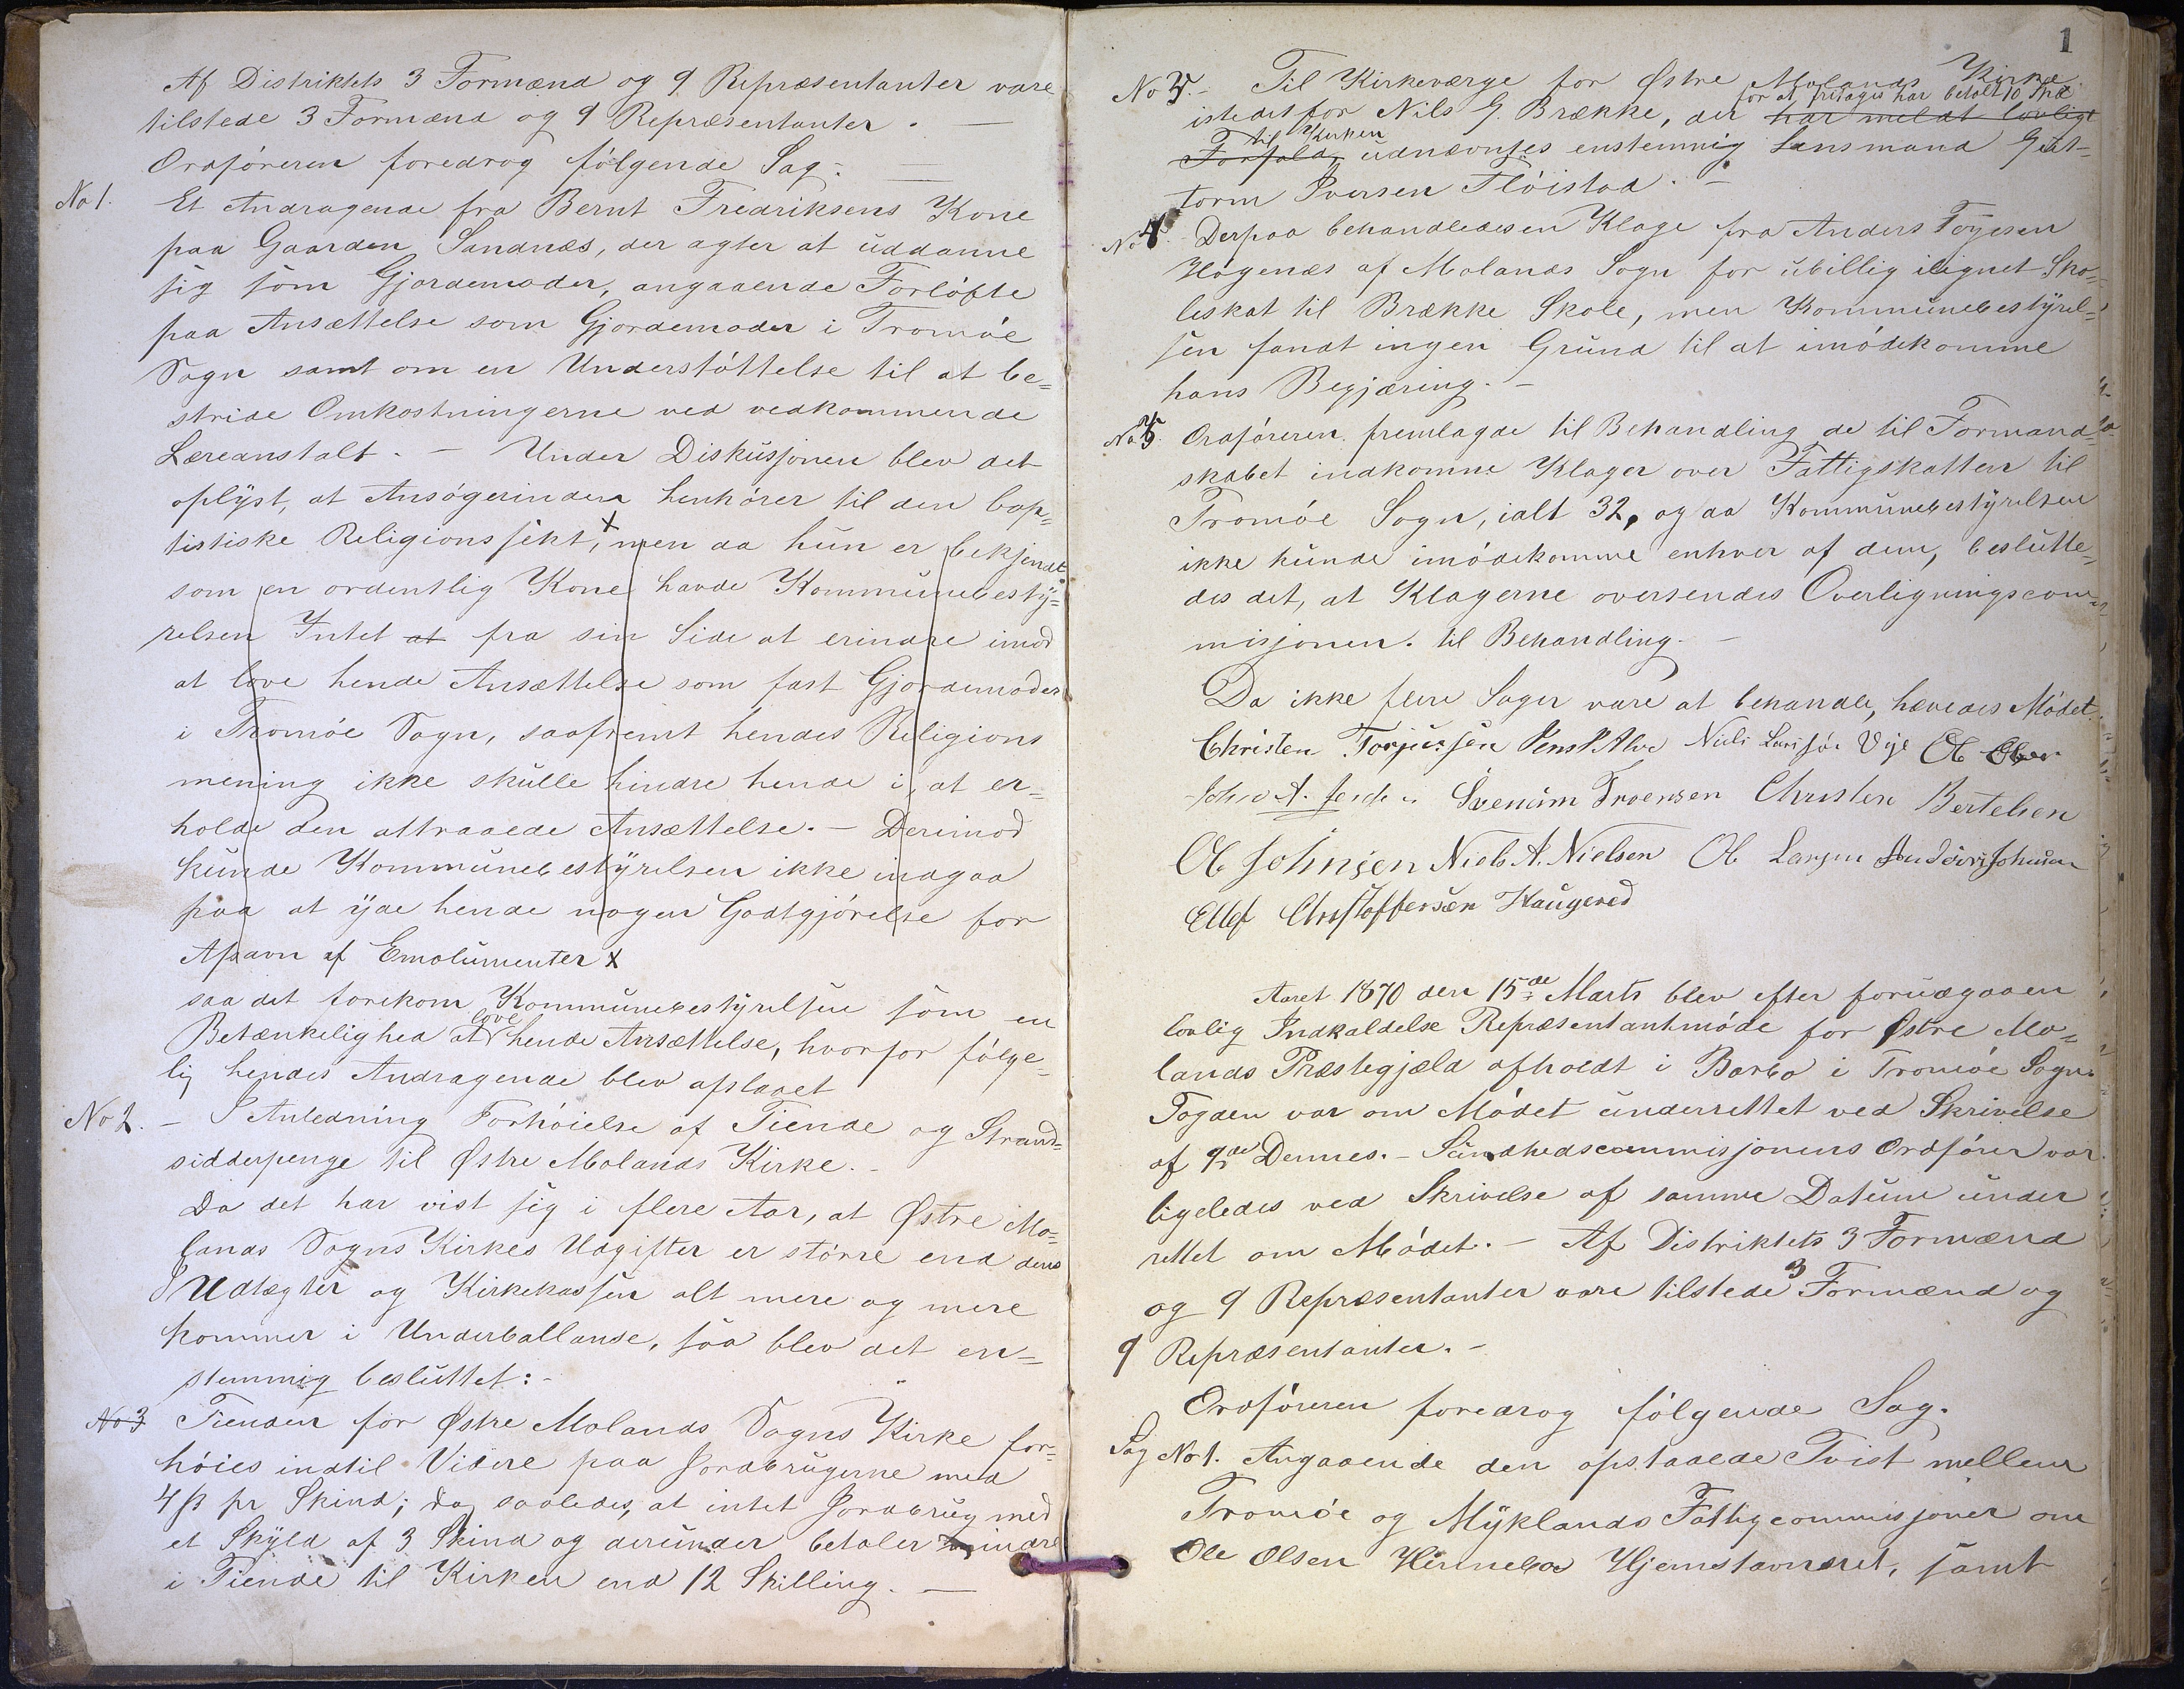 Af Distriktets 3 Formænd og 9 Repræsentanter vare
tilstede 3 Formænd og 9 Repræsentanter. —
Ordføreren foredrog følgende Sag: —
No 1. Et Andragende fra Bernt Fredriksens Kone
paa Gaarden Sandnæs, der agter at uddanne
sig som Gjordemoder, angaaende Forløfte
paa Ansættelse som Gjordemoder i Tromøe
Sogn samt om en Understøttelse til at be=
stride Omkostningerne ved vedkommende
Læreanstalt. — Under Diskusjonen blev det
oplyst, at Ansøgerinden henhører til den bap=
tistiske Religionssekt, x men da hun er bekjendt
som en ordentlig Kone havde Kommunebesty=
relsen Intet at fra sin Side at erindre imod
at love hende Ansættelse som fast Gjordemoder
i Tromøe Sogn, saafremt hendes Religions
mening ikke skulle hindre hende i at er=
holde den attraaede Ansættelse. — Derimod
kunde Kommunebestyrelsen ikke indgaa
paa at yde hende nogen Godtgjørelse for
Afsavn af Emolumenter x
saa det forekom Kommunebestyrelsen som en
Betænkelighed at love hende Ansættelse, hvorfor følge=
lig hendes Andragende blev afslaaet
No 2. — I Anledning Forhøielse af Tiende og Strand=
sidderpenge til Østre Molands Kirke. —
Da det har vist sig i flere Aar, at Østre Mo=
lands Sogns Kirkes Udgifter er større end dens
Udtægter og Kirkekassen alt mere og mere
kommer i Underballanse, saa blev det en=
stemmig besluttet: —
No 3 Tienden for Østre Molands Sogns Kirke for=
høies indtil Videre paa Jordbrugerne med
4 ß pr Skind; dog saaledes, at intet Jordbrug med
et Skyld af 3 Skind og derunder betaler mindre
i Tiende til Kirken end 12 Skilling. —
1
No 3. — Til Kirkeværge for Østre Molands Kirke
for at fritages har betalt 10
istedetfor Nils G. Brække, der har meldt lovligt
til Kirken
Forfald, udnævntes enstemmig Lensmand Gut=
torm Iversen Fløistad. —
No 4. Derpaa behandledes en Klage fra Anders Tøgesen
Høgenæs af Molands Sogn for ubillig ilignet Sko=
leskat til Brække Skole, men Kommunebestyrel=
sen fandt ingen Grund til at imødekomme
hans Begjæring. —
No 5. Ordføreren fremlagde til Behandling de til Formand=
skabet indkomne Klager over Fattigskatten til
Tromøe Sogn, ialt 32, og da Kommunebestyrelsen
ikke kunde imødekomme enhver af dem, beslutte=
des det, at Klagerne oversendes Overligningscom=
misjonen. til Behandling. —
Da ikke flere Sager vare at behandle, hævedes Mødet.
Christen Torjussen Jens P Alve Niels Larssøn Veje Ol
John A. Svenum Troensen Christen Bertelsen
Ol Johnsen Niels A. Nielsen Ol Larsen Anders Johnsen
Ellef Christoffersen Haugered
Aaret 1870 den 15de Marts blev efter forudgaaen
lovlig Indkaldelse Repræsentantmøde for Østre Mo=
lands Præstegjæld afholdt i Barbo i Tromøe Sogn.
Fogden var om Mødet underrettet ved Skrivelse
af 9de Dennes. — Sundhedscommisjonens Ordfører var
ligeledes ved Skrivelse af samme Datum under
rettet om Mødet. — Af Distriktets 3 Formænd
og 9 Repræsentanter vare tilstede 3 Formænd og
9 Repræsentanter. —
Ordføreren foredrog følgende Sag.
Sag No 1. Angaaende den opstaaede Tvist mellem
Tromøe og Myklands Fattigcommisjoner om
Ole Olsen Hinnebo Hjemstavnsret, samt